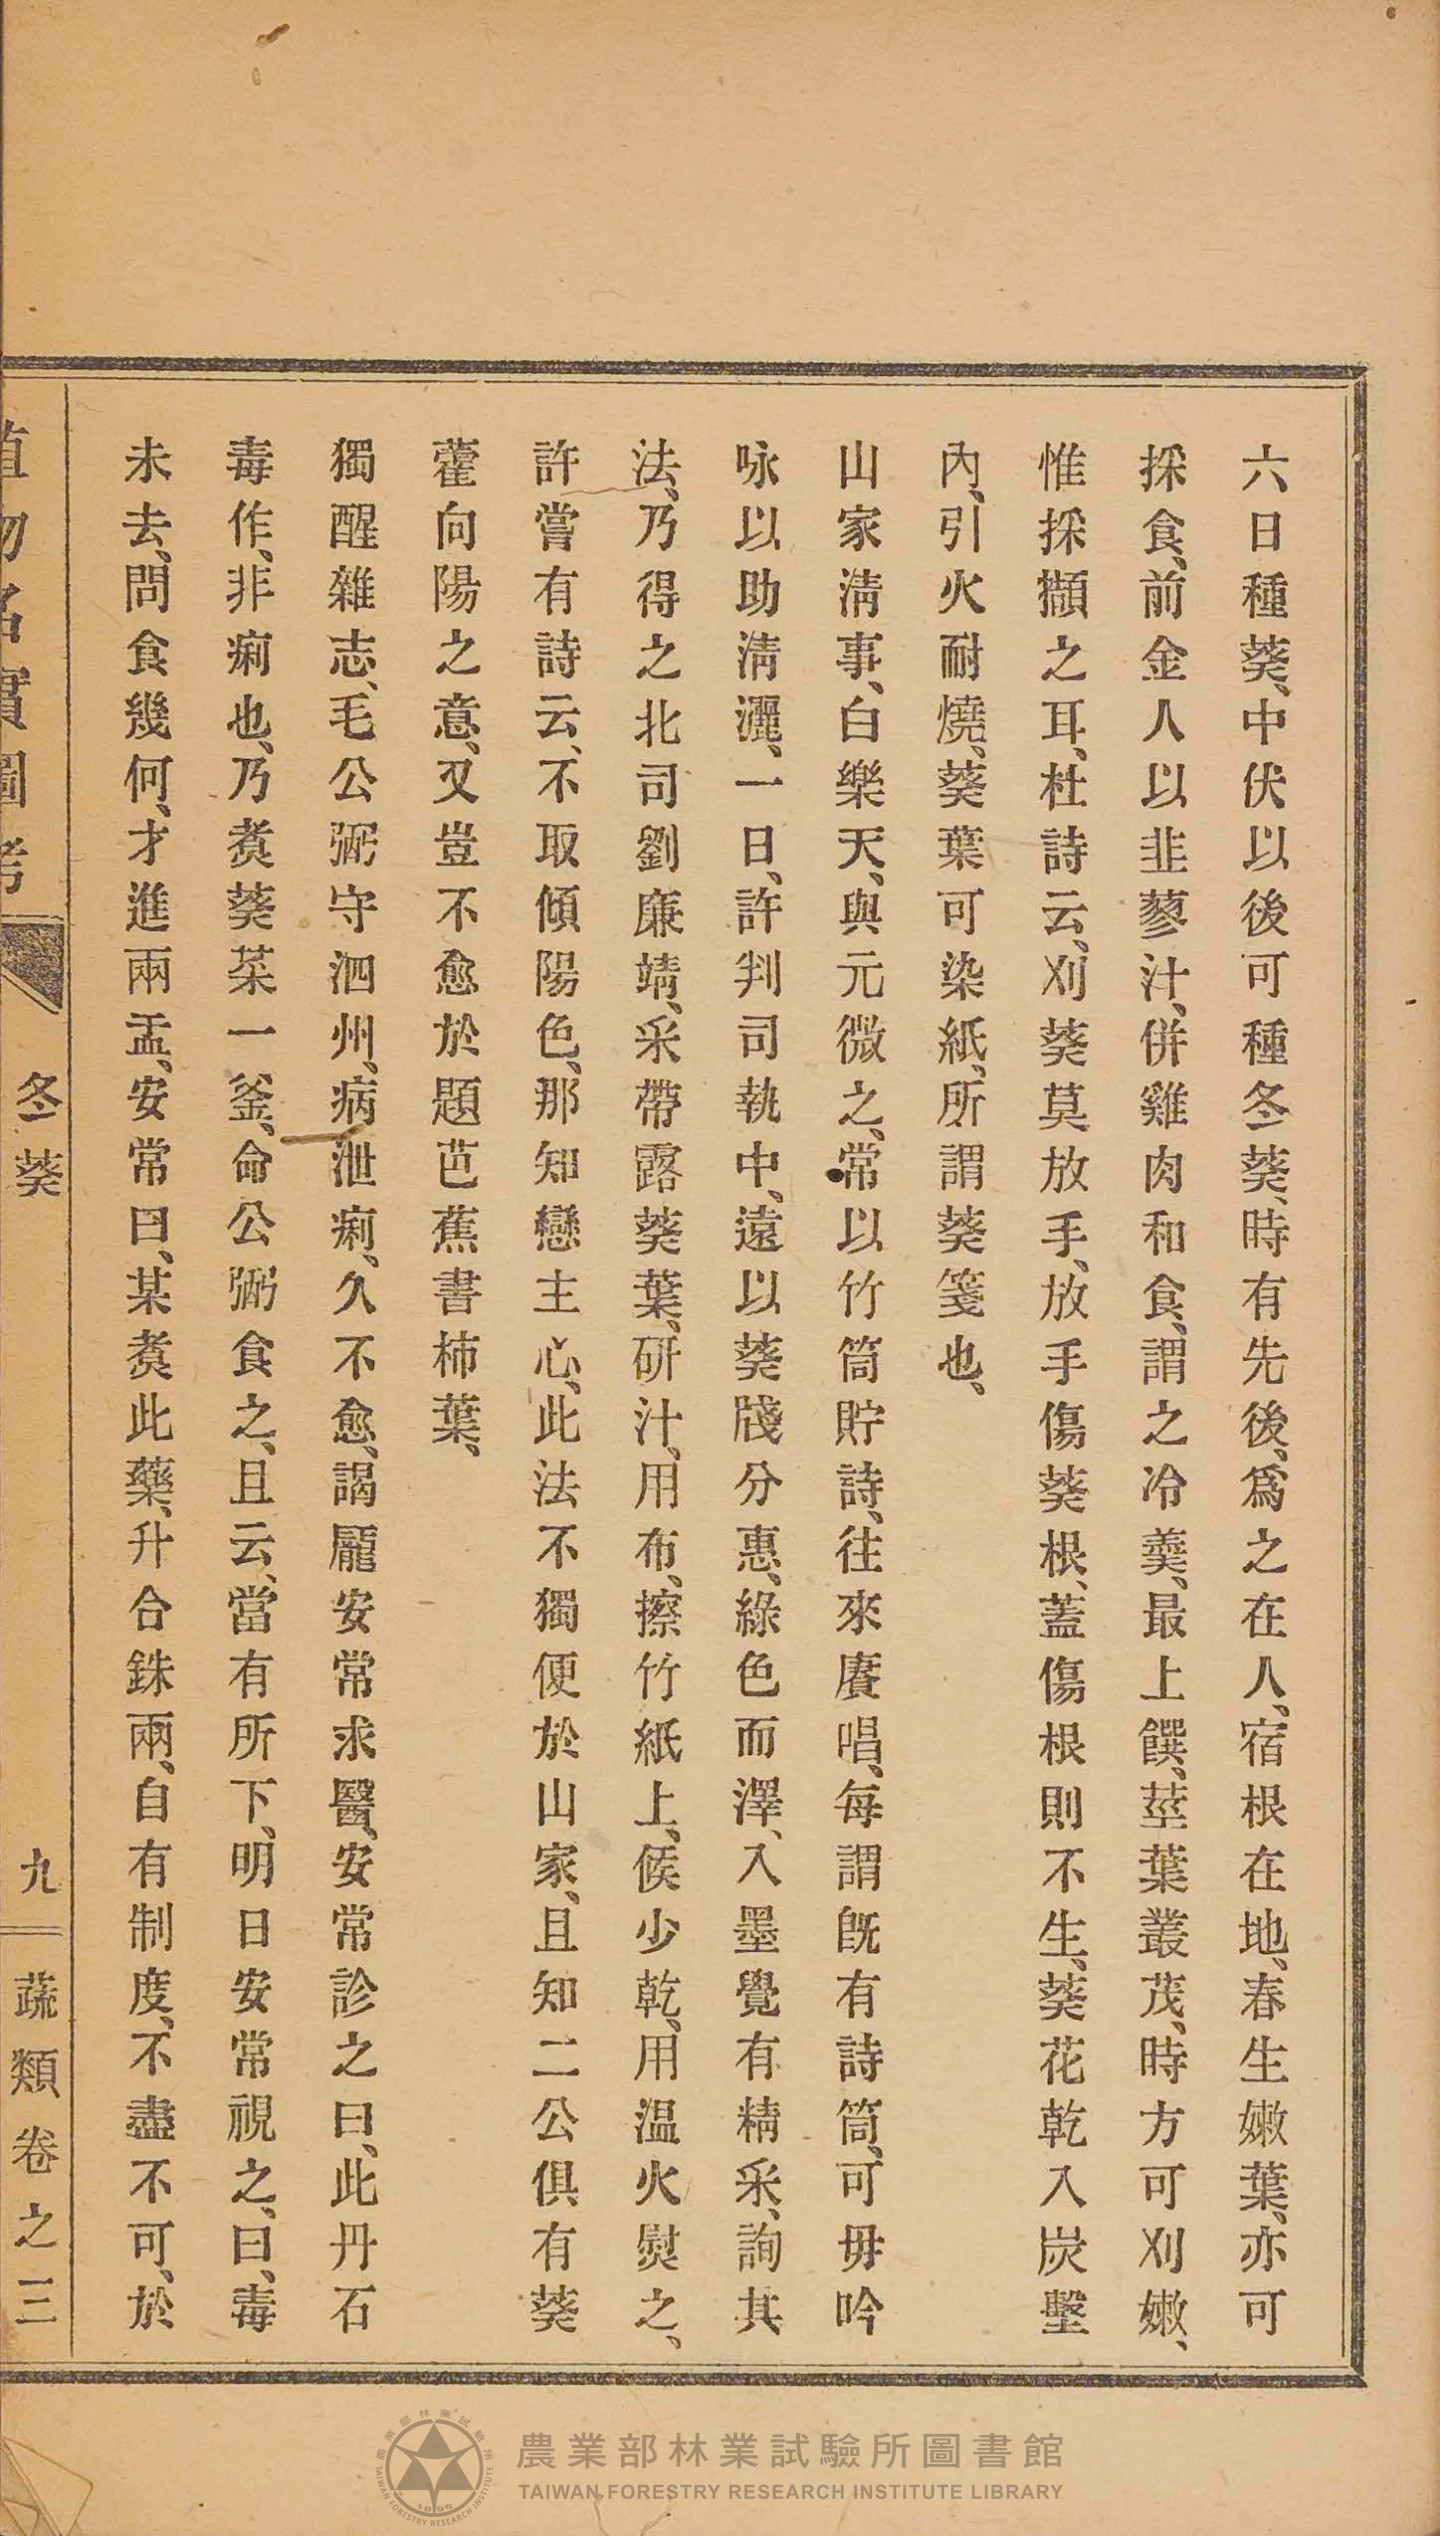 六日種葵、中伏以後可種冬葵、時有先後、爲之在人、宿根在地、春生嫩葉、亦可
採食、前金人以韭蓼汁、併雞肉和食、謂之冷羹、最上饌、莖葉叢茂、時方可刈嫩、
惟採擷之耳、杜詩云、刈葵莫放手、放手傷葵根、蓋傷根則不生、葵花乾入炭墼
內、引火耐燒、葵葉可染紙、所謂葵箋也、
山家淸事、白樂天、與元微之、常以竹筒貯詩、往來賡唱、每謂旣有詩筒、可毋吟
咏以助淸灑、一日、許判司執中、遠以葵牋分惠、綠色而澤、入墨覺有精采、詢其
法、乃得之北司劉廉靖、采帶露葵葉、研汁、用布、擦竹紙上、候少乾、用温火熨之、
許嘗有詩云、不取傾陽色、那知戀主心、此法不獨便於山家、且知二公俱有葵
藿向陽之意、又豈不愈於題芭蕉書柿葉、
獨醒雜志、毛公弼守泗州、病泄痢、久不愈、謁龎安常求醫、安常診之曰、此丹石
毒作、非痢也、乃煑葵菜一釜、命公弼食之、且云、當有所下、明日安常視之、曰、毒
未去、問食幾何、才進兩盂、安常曰、某煑此藥、升合銖兩、自有制度、不盡不可、於
植物名實圖考　冬葵　九　蔬類卷之三
農業部林業試驗所圖書館
TAIWAN FORESTRY RESEARCH INSTITUTE LIBRARY